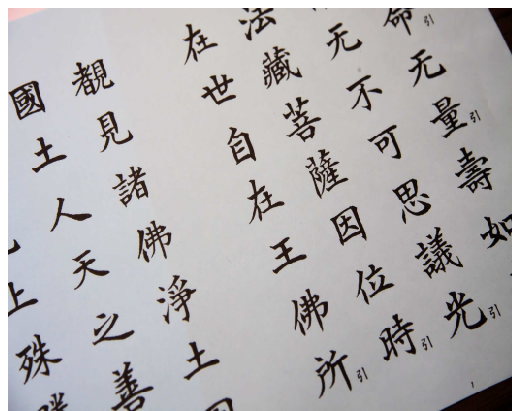 命引无量引壽如
无不可思議光引
法藏菩薩因位時引
在世自在王佛所引
覩見諸佛淨土
國土人天之善
上殊